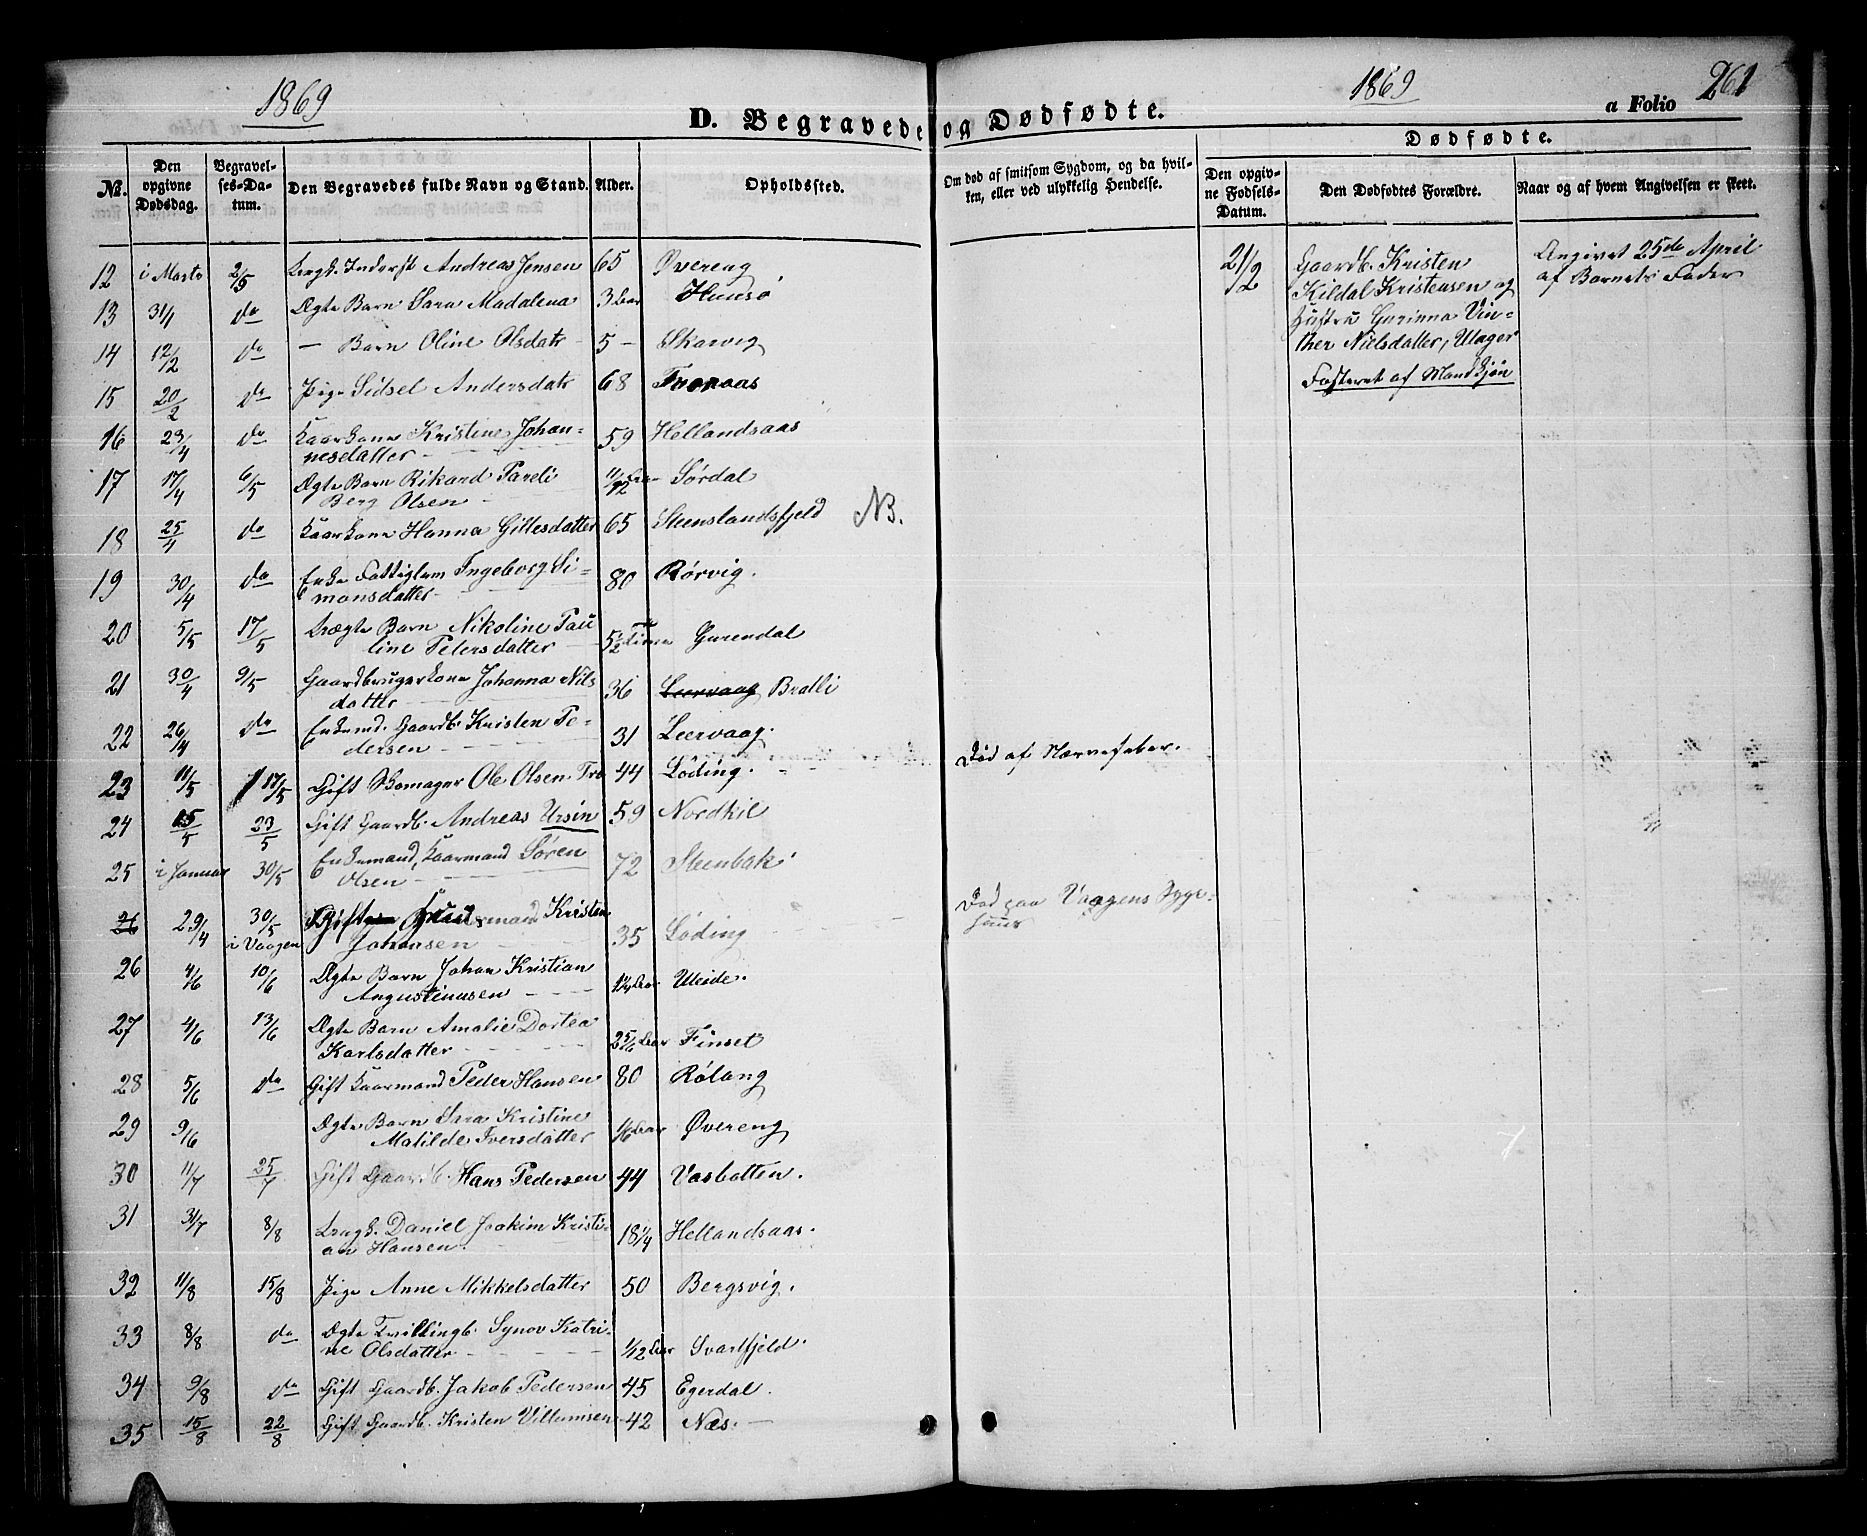 1869
1869
a Folio 261
D. Begravede og Dødfødte.
Dødfødte.
No.
Den opgivne Dødsdag.
Begravelses-Datum.
Den Begravedes fulde Navn og Stand.
Alder.
Opholdssted.
Om død af smitsom Sygdom, og da hvilken, eller ved ulykkelig Hendelse.
Den opgivne Fødsels-Datum.
Den Dødfødtes Forældre.
Naar og af hvem Angivelsen er skeet.
12 i Marts 2/5 Inderst Andreas Jensen 65 Øvereng
13 31/1 do Ægte Barn Sara Madalena 3 Aar
14 12/2 do — Barn Oline Olsdatr 5 — Skarvig
15 20/2 do Pige Sidsel Andersdatr 68 Tranaas
16 23/4 do Kaarkone Kristine Johan-
nesdatter 59 Hellandsaas
17 17/4 6/5 Ægte Barn Rikard Pareli
Berg Olsen 11/12 Aar Sørdal
18 25/4 do Kaarkone Hanna Gittesdatter 65 Steenslandsfjeld NB.
19 30/4 do Enke Fattiglem Ingeborg Si-
monsdatter 80 Rørvig.
20 5/5 17/5 Uægte Barn Nikoline Pau
line Petersdatter 5 1/2 Time Gurendal
21 30/4 9/5 Gaardbrugerkone Johanna Nils
datter 36 Leervaag Bratli
22 26/4 do Enkemd. Gaardb. Kristen Pe-
dersen 31 Leervaag. Død af Nervefeber.
23 11/5 17/5 Gift Skomager Ole Olsen Tro 44 Løding.
24 15/5 23/5 Gift Gaardb. Andreas Ursin 59 Nordkil
25 i Januar 30/5 Enkemand, Kaarmand Søren
Olsen 72 Steenbak
26 29/4 30/5 i Vaagen Kristen
Johansen 35 Løding Død paa Vaagens Syge-
huus
26 4/6 10/6 Ægte Barn Johan Kristian
Angustinusen 1 1/4 Aar Uleide.
27 4/6 13/6 Ægte Barn Amalie Dortea
Karlsdatter 2 5/6 Aar Finset
28 5/6 do Gift Kaarmand Peder Hansen 80 Røtang
29 9/6 Ægte Barn Sara Kristine
Matilde Iversdatter 1/6 Aar Øvereng
30 11/7 25/7 Gift Gaardb. Hans Pedersen 44 Vasbotten.
31 31/7 8/8 Ungk. Daniel Joakim Kristi-
an Hansen. 18 1/4 Hellandsaas.
32 11/8 15/8 Pige Anne Mikkelsdatter 50 Bergsvig.
33 8/8 do Ægte Tvillingb. Synov Katri-
ne Olsdatter 1/12 Aar Svartfjeld.
34 9/8 do Gift Gaardb. Jakob Pedersen 45 Egerdal.
35 15/8 22/8 Gift Gaardb. Kristen Villumsen 42 Næs. —
21/2 Gaardb. Kristen
Kildal Kristensen og
Hustru Gurinna Vin-
ther Nielsdatter, Ulager
Fosteret af Mandkjøn
Angivet 25de April
af Barnets Fader